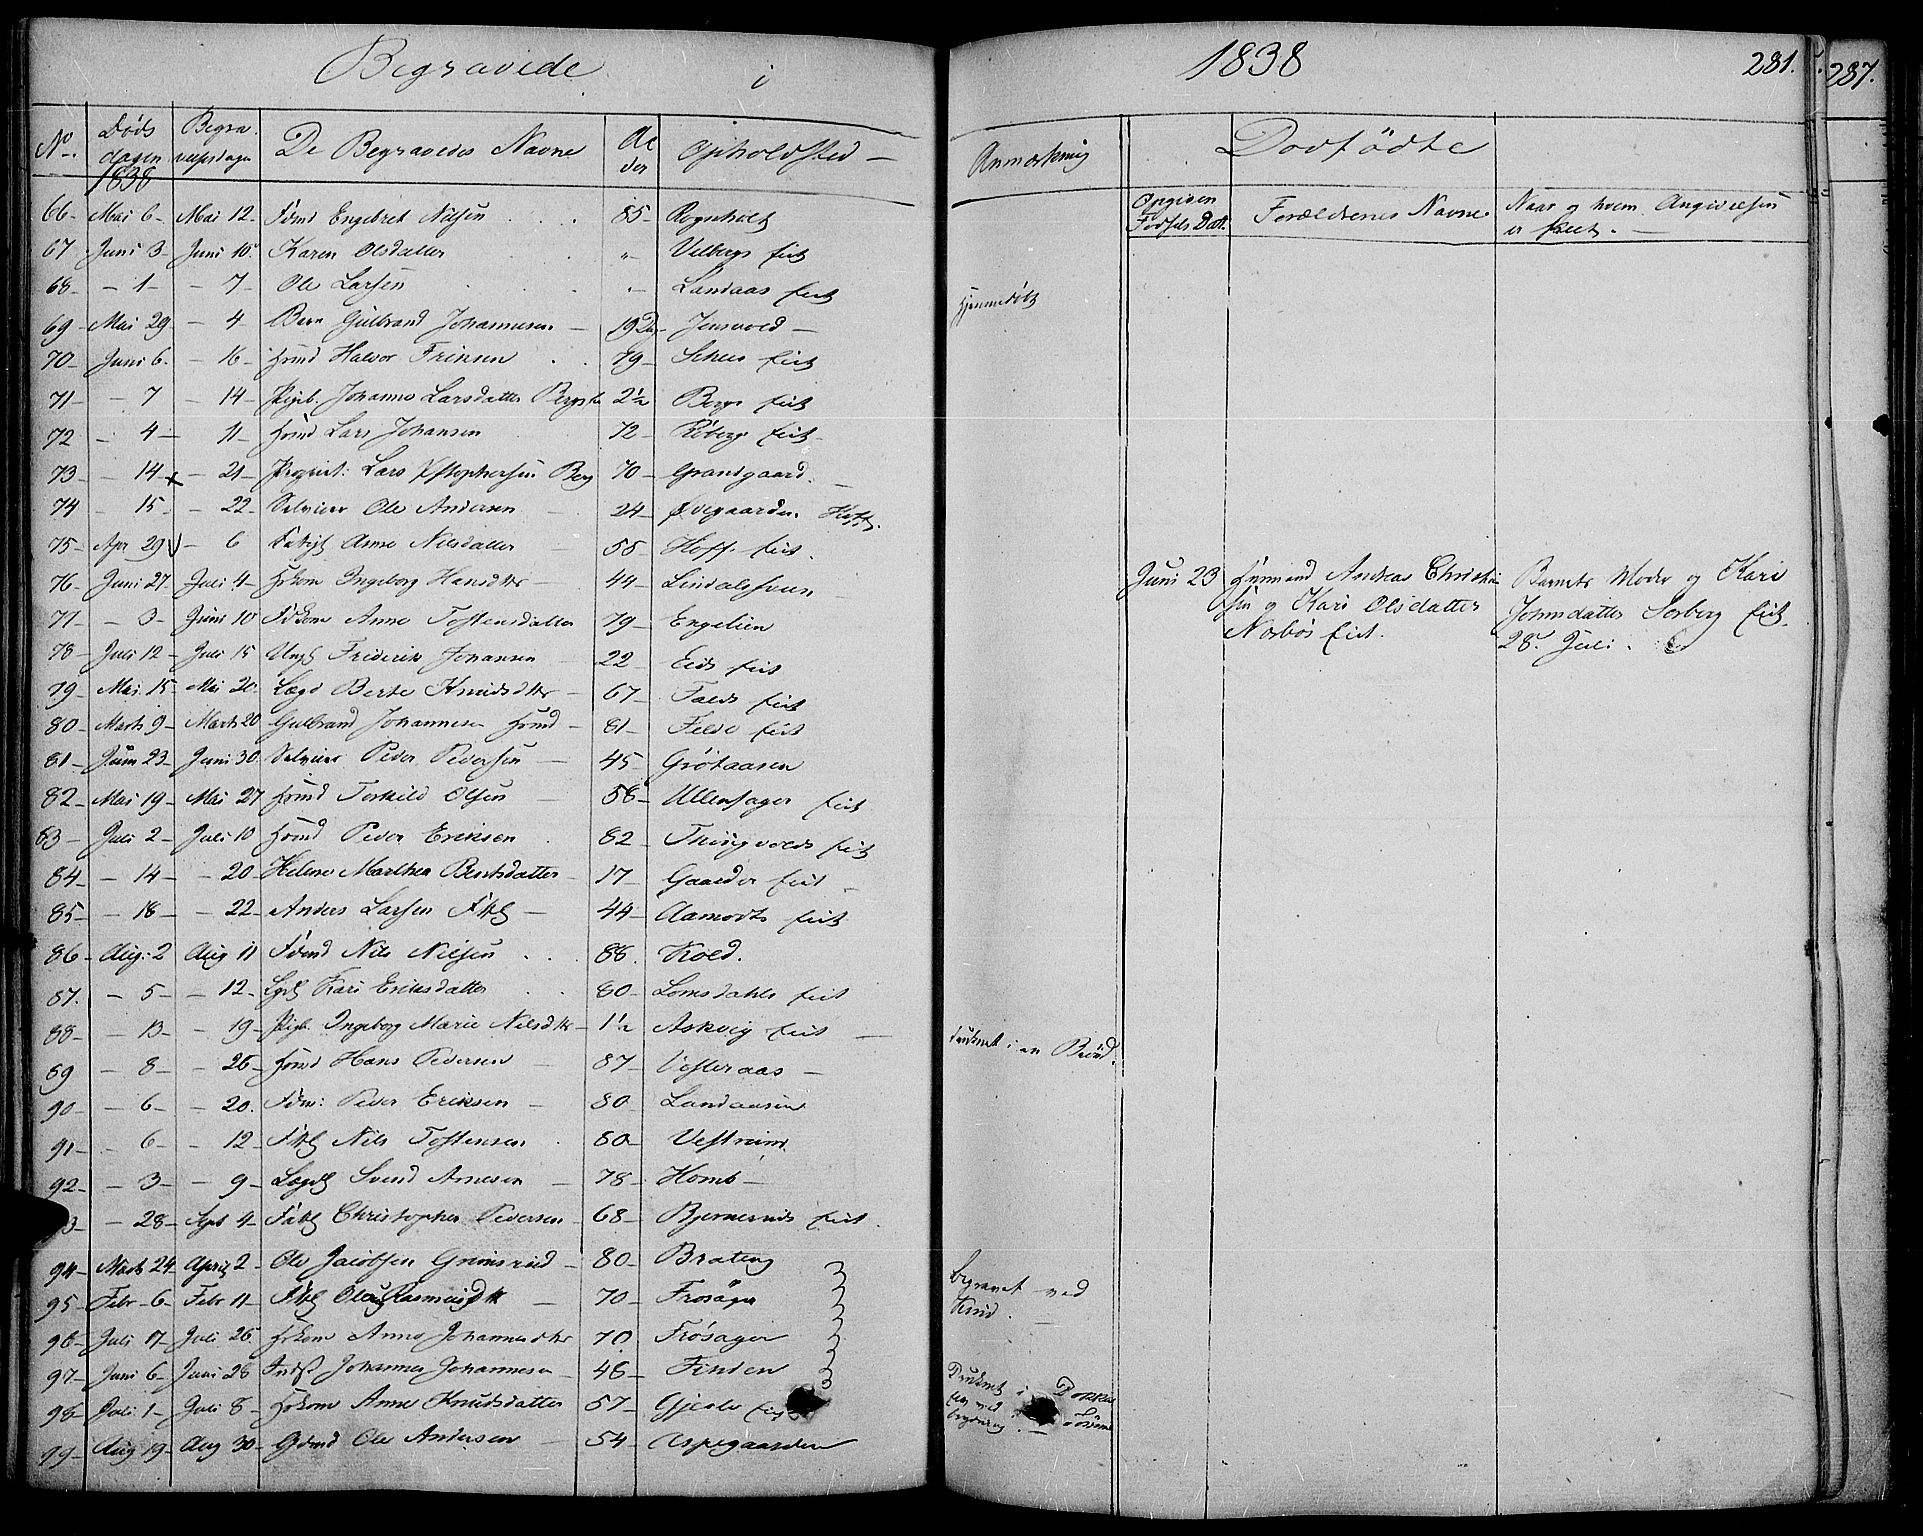 Begravede i 1838 281. 287.
No. Døds dagen 1838 Begra velsesdagen De Begravedes Navne Al der Opholdsted
66 - Mai 6 - Mai 12 - Fdmd Engebret Nilsen 85 - Rognholt
67 Juni 3 - Juni 10 Karen Olsdatter " - Velbergs Eit
68 - 1 - - 7 Ole Larsen " - Landaas Eit
69 - Mai 29 - 4 - Barn Gulbrand Johannesen - 19 Dg - Jensvold -
70 - Juni 6 - 16 - Hmd Halvor Frinsen 79 - Eit
71 - - 7 - 14 - Pigb. Johanne Larsdatter 2½ Bergs Eit
72 - 4 - 11 - Hmd Lars Johansen 72 - Røberg Eit -
73 - 14 - 21 - Propriet: Lars Berg 70 - Gransgaard -
74 - 15 - - 22 - Selveier Ole Andersen 24 - Øvegaarden Hoff.
75 - Apr 29 - 6 Anne Nilsdatter 55 - Hoff Eit.
76 - Juni 27 Juli 4 - Hskone Ingeborg Hansdtr - 44 - Lindalssveen -
77 - - 3 - Juni 10 Fdkone Anne Tostensdatter 79 - Engelien
78 - Juli 12 - Juli 15 Ungk Friderik Johansen 22 - Eids Eit
79 - Mai 15 - Mai 20 Lægd Berte Knudsdtr - 67 - Eit
80 - Marts 9 - Marts 20 Gulbrand Johannesen Hmd - 81 - Eit
81 - Juni 23 - Juni 30 Selveier Peder Pedersen - 45 - Grøtaasen
82 - Mai 19 - Mai 27 Hmd Torkild Olsen - 58 - Ullensager Eit
83 - Juli 2 - Juli 10 Hmd Peder Eriksen 82 - Thingvolds Eit
84 - - 14 - - 20 Helene Marthea Berntsdatter - 17 - Gaarder Eit -
85 - - 18 - - 22 - Anders Larsen - 44 - Aamodts Eit
86 - Aug. 2 Aug 11 Fdmd Nils Nilsen 88. Kold.
87. - 5 - - 12 - Kari Eriksdatter 80 - Lomsdahls Eit
88 - - 13 - - 19 - Pigb. Ingeborg Marie Nilsdtr - 1½ Askvig Eit -
89 - 8 - - 26 - Hmd Hans Pedersen - 87 - Vesteraas -
90 - - 6 - - 20. Fdm: Peder Eriksen - 80 Landaasen
91 - - 6 - - 12 - Nils Tostensen 80 - Vestreim
92 - - 3 - - 9 - Svend Arnesen - 78 - Homb -
- 28 - Sept 4 - Christopher Pedersen - 68 - Bjørneruds Eit.
94 - Marts 24 - April 2 - Ole Jacobsen Grimsrud - 80 - Brateng
95 - Febr - 6 - Febr 11 - - 70 - Frøsager
96 - Juli 17 - Juli 26 Hskone Anne Johannesdtr 70 Frøsager
97 - Juni 6 - Juni 28 Johannes Johannesen - 48 - Finden
98 - Juli 1 - Juli 8 - Hskone Anne Knudsdatter 57 - Gjerle Eit
99 - Aug 19 - Aug 30 - Gdmd Ole Andersen - 54 - Aspegaarden
Anmærkning
Hjemmedøbt
druknet i en Brønd.
begravet ved
Druknet i Dokka
Dødfödte
Opgiven Fødsels Dat. Forældrenes Navne Naar og hvem Angivelsen er skeet. -
Juni 23 Huusmand Andreas Christian- Barnets Moder og Kari
sen og Kari Olsdatter Johnsdatter Sorberg Eit.
Nørbös Eit. 28. Juli.